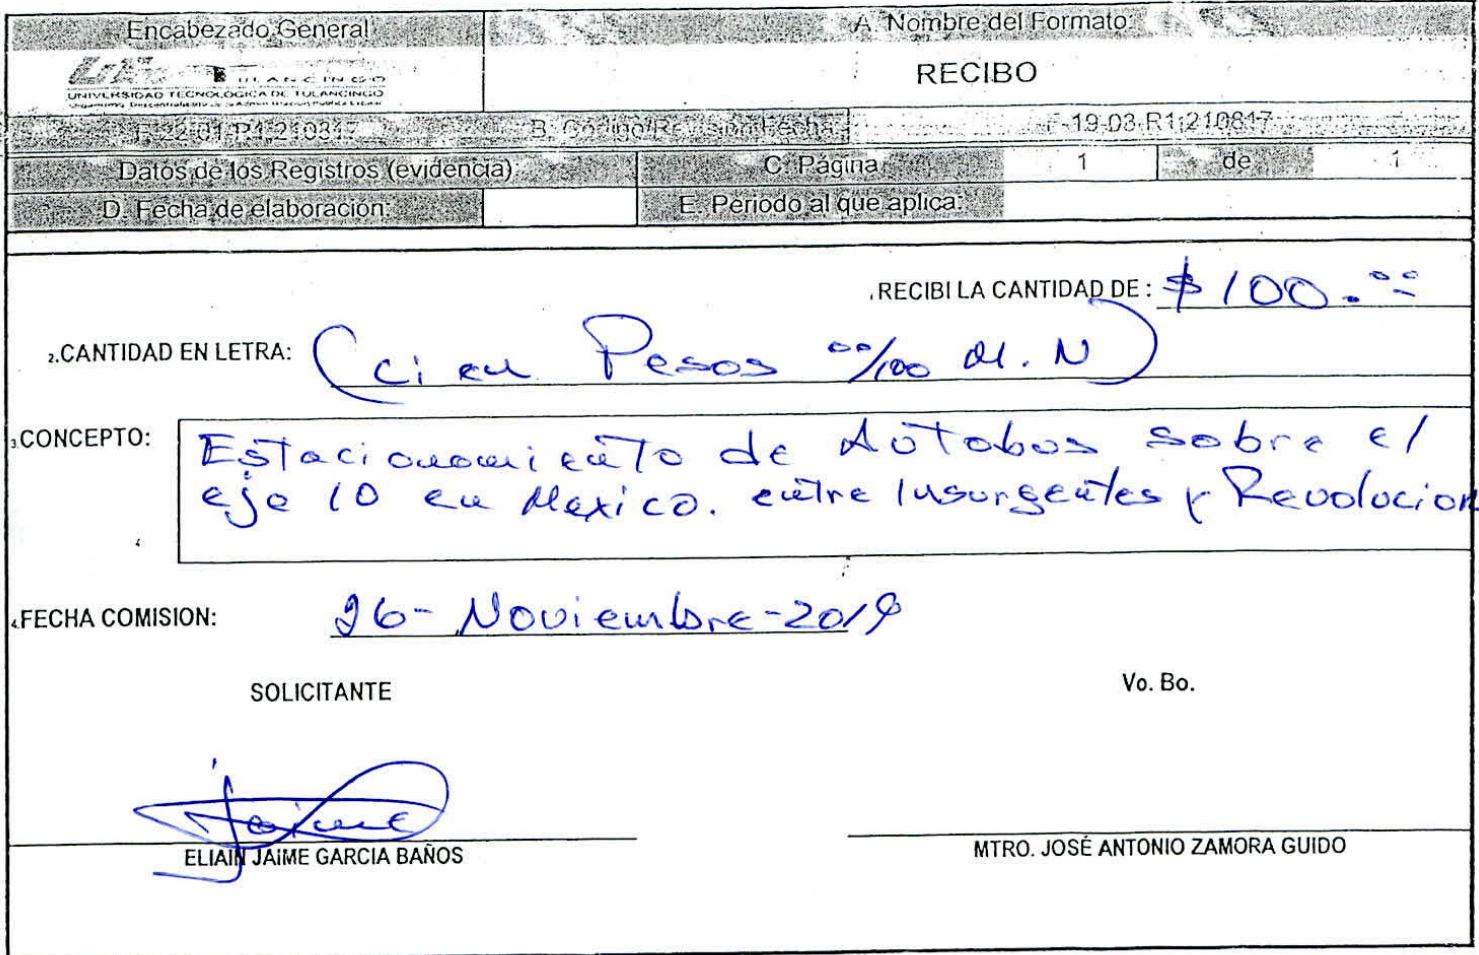 Encabezado General
A. Nombre del Formato:
TULANCINGO
UNIVERSIDAD TECNOLOGICA DE TULANCINGO
RECIBO
F-22-01-R1-210817
B. Código/Revisión/Fecha:
F-19-03-R1-210817
Datos de los Registros (evidencia):
C. Página
1
de
1
D. Fecha de elaboracion:
E. Periodo al que aplica:
RECIBI LA CANTIDAD DE : $ 100.00
2.CANTIDAD EN LETRA: (cien Pesos 00/100 M.N)
3.CONCEPTO: Estacionamiento de Autobus sobre el
eje 10 en Mexico. entre Insurgentes y Revolucion
4.FECHA COMISION: 26-Noviembre-2019
SOLICITANTE
Vo. Bo.
Jaime
ELIAIN JAIME GARCIA BAÑOS
MTRO. JOSÉ ANTONIO ZAMORA GUIDO